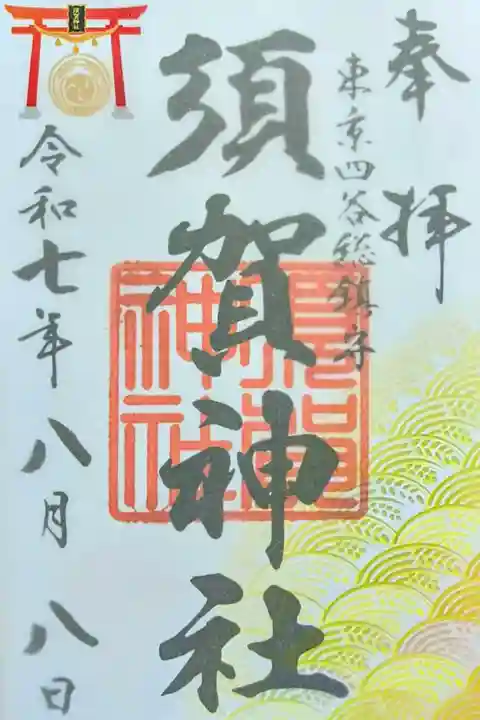 奉拝
東京四谷総鎮守
須賀神社
令和七年八月八日
須賀神社